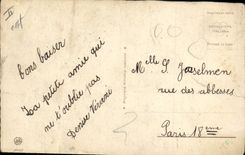 bons baiser
La petite amie qui
ne t'oublie pas
Denise
Mlle S. Josselmen
rue des abbesses
Paris 18eme